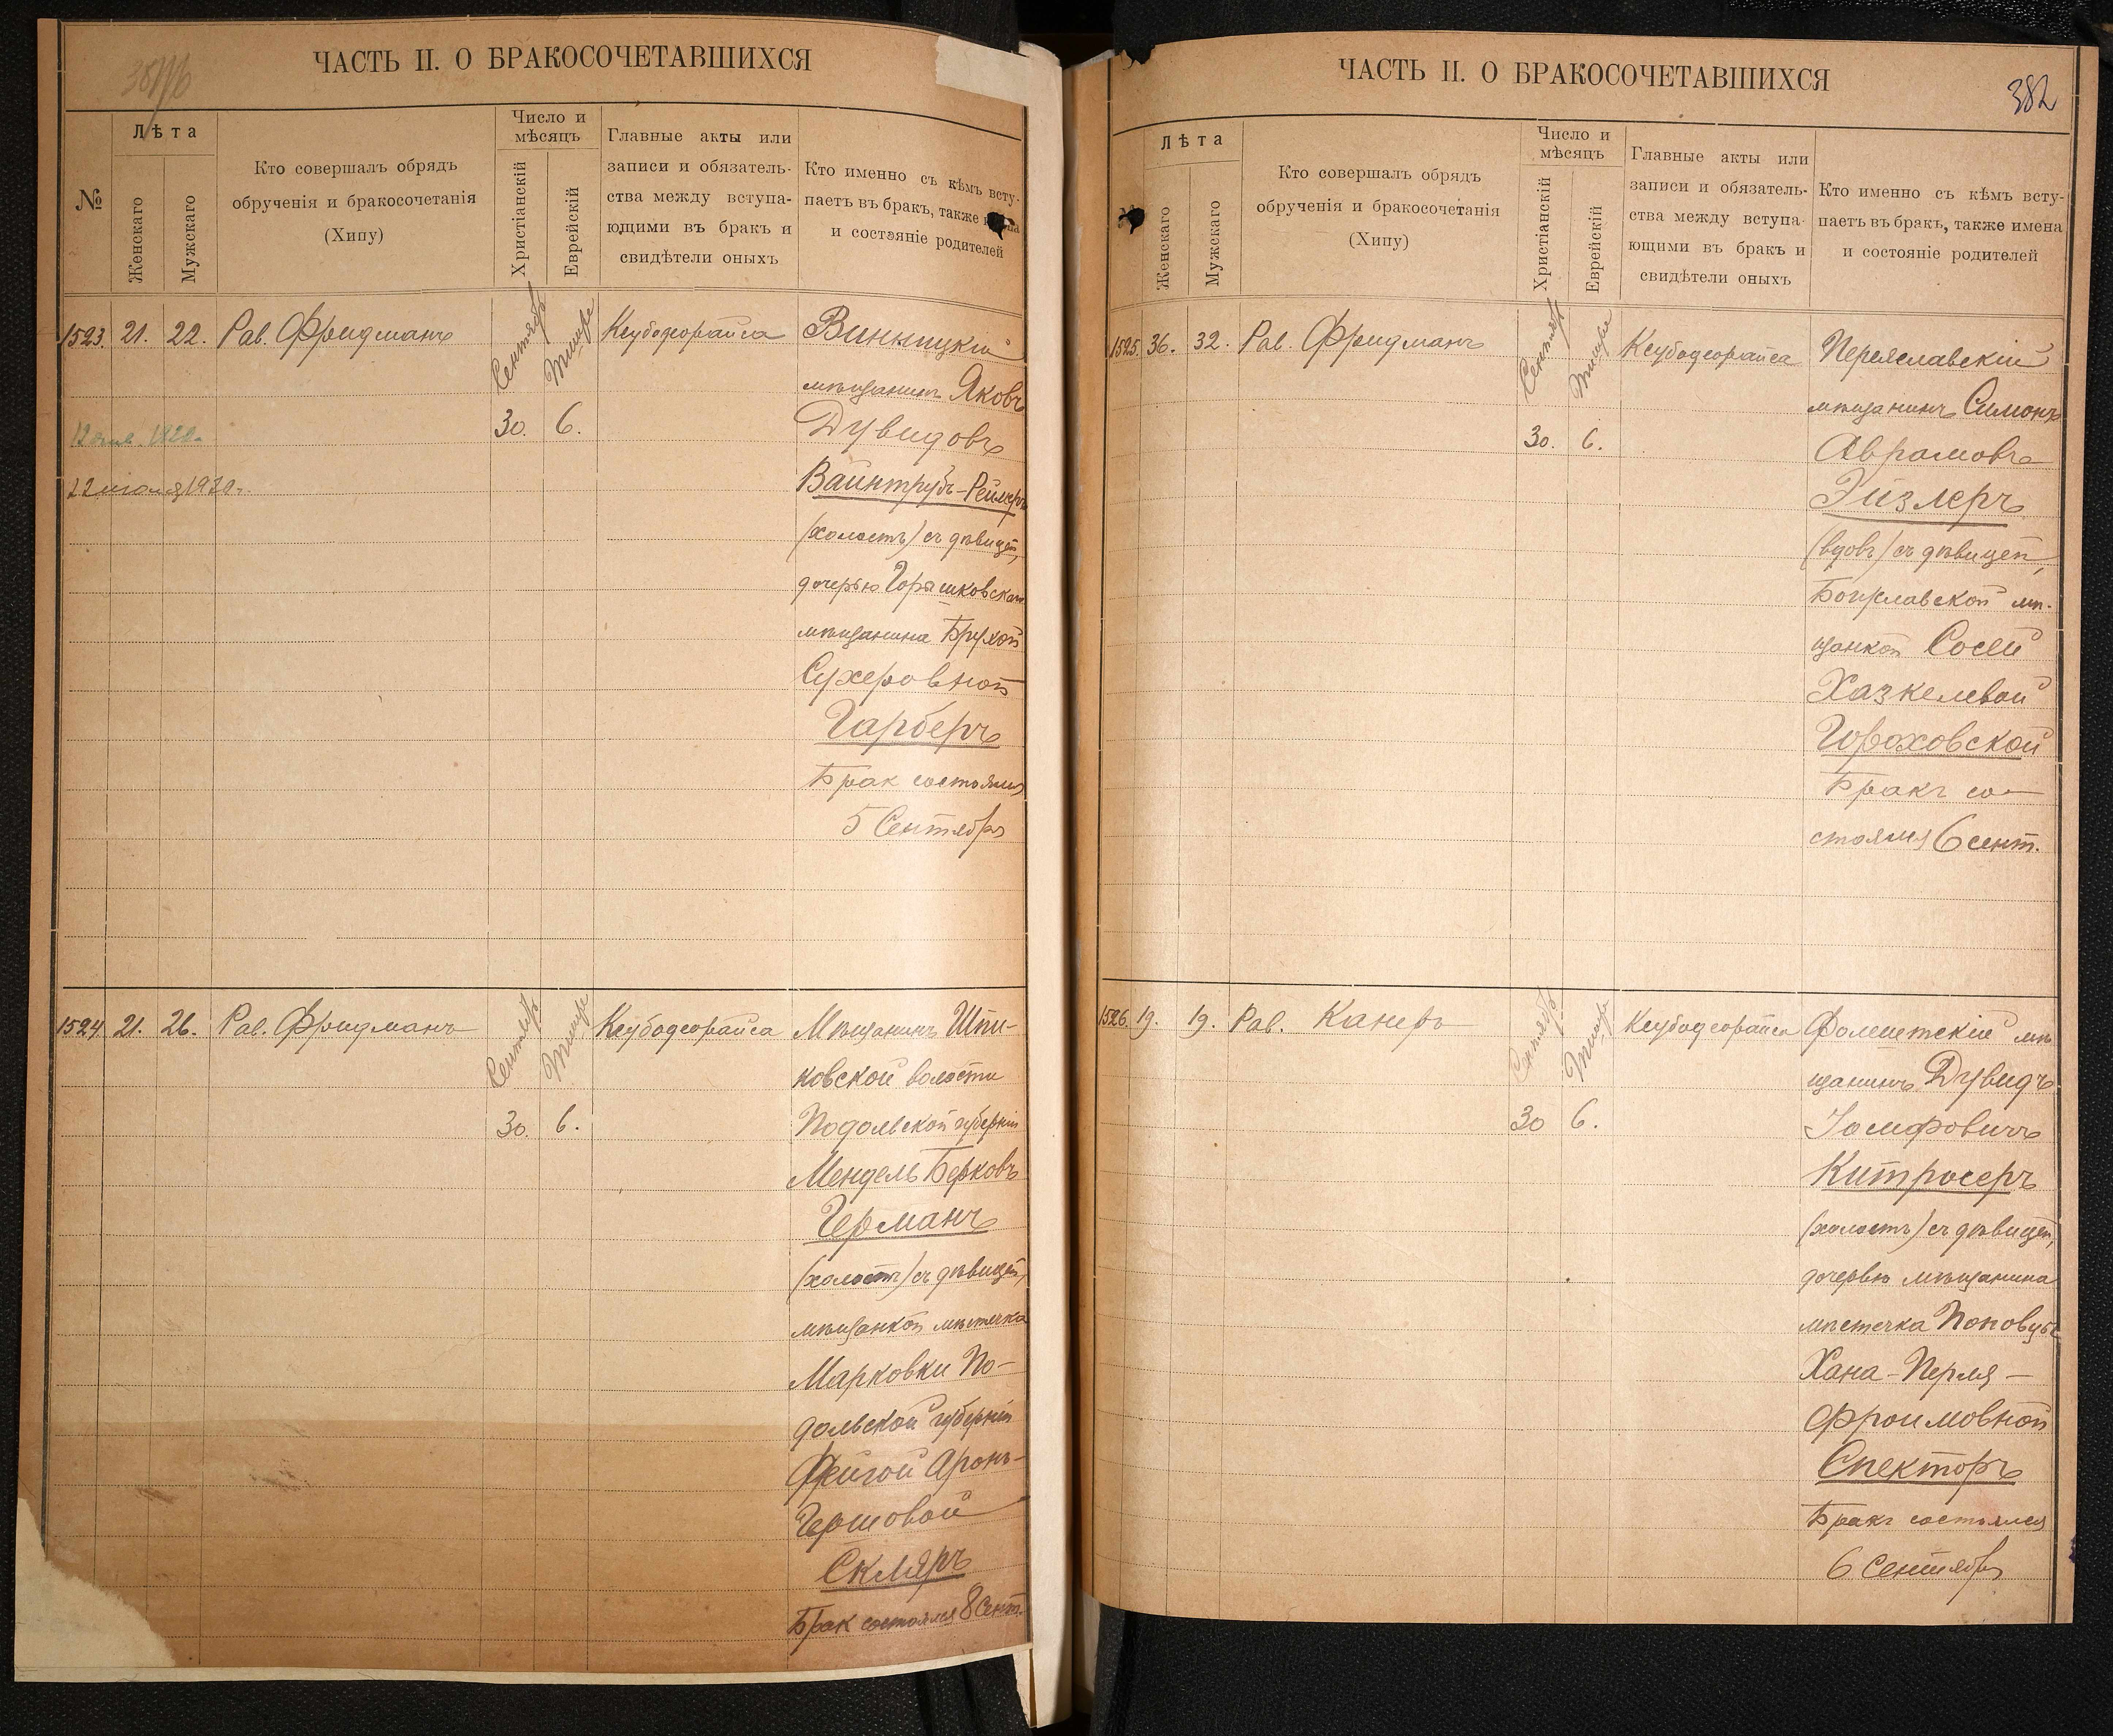 ЧАСТЬ II. О БРАКОСОЧЕТАВШИХСЯ
№
Лѣта
Женскаго
Мужскаго
Кто совершалъ обрядъ
обрученія и бракосочетанія
(Хипу)
Число и
мѣсяцъ
Христіанскій
Еврейскій
Главные акты или
записи и обязатель-
ства между вступа-
ющими въ бракъ и
свидѣтели оныхъ
Кто именно съ кѣмъ всту-
паетъ въ бракъ, также
и состояніе родителей
1523. 21. 22. Рав. Фридманъ Сентябр Тишре Ксубодеорайса Винницкій
мѣщанинъ Яковъ
30. 6. Дувидовъ
22 июля 1920г. Вайнтрубъ-Реймеръ
(холостъ) съ дѣвицей,
дочерью Горышковскаго
мѣщанина Брухой
Сухеровной
Гарберъ
Брак состоялся
5 Сентября
1524 21. 26. Рав. Фридманъ Сентябр Тишре Ксубодеорайса Мѣщанинъ Шпи-
ковской волости
30. 6. Подольской губерніи
Мендель Берковъ
Германъ
(холостъ) съ дѣвицей,
мѣщанкой мѣстечка
Марковки По-
дольской губерніи
Фейгой Аронъ-
Гершовой
Скляръ
Брак состоялся 8 Сент.
ЧАСТЬ II. О БРАКОСОЧЕТАВШИХСЯ
382
Лѣта
Женскаго
Мужскаго
Кто совершалъ обрядъ
обрученія и бракосочетанія
(Хипу)
Число и
мѣсяцъ
Христіанскій
Еврейскій
Главные акты или
записи и обязатель-
ства между вступа-
ющими въ бракъ и
свидѣтели оныхъ
Кто именно съ кѣмъ всту-
паетъ въ бракъ, также имена
и состояніе родителей
1525. 36. 32. Рав. Фридманъ Сентябр Тишре Ксубодеорайса Переяславскій
мѣщанинъ Симонъ
30. 6. Аврамовъ
Эйзлеръ
(вдовъ) съ дѣвицей,
Богуславской мѣ-
щанкой Сосей
Хазкелевой
Гороховской
Бракъ со-
стоялся 6 сент.
1526. 19. 19. Рав. Канеръ Сентябрь Тишре Ксубодеорайса Фалештскій мѣ
щанинъ Дувидъ
30 6. Іосифовичъ
Китросеръ
(холостъ) съ дѣвицей,
дочерью мѣщанина
мѣстечка Поповцы
Хана-Перля-
Фроимовной
Спекторъ
Бракъ состоялся
6 Сентября